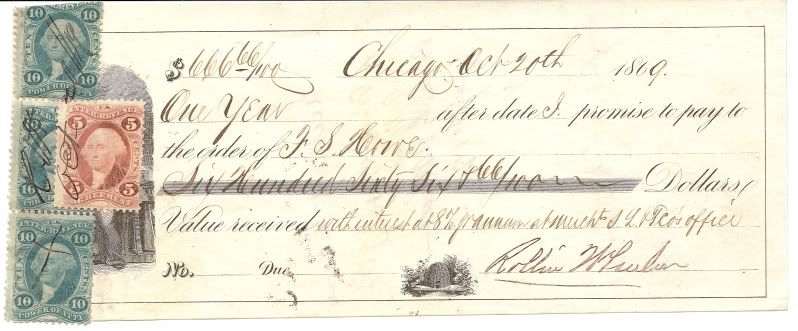 $666 66/100 Chicago Oct 20th 1869.
One Year after date I promise to pay to
the order of F. S. Howe
Six Hundred Sixty Six & 66/100 Dollars,
Value received with interest at 8% pr annum at office
No. Due Rollin
10 TEN CENTS 10
POWER OF ATTY
INTER. REVENUE
5 5
AGREEMENT
INTER. REVENUE
10 TEN CENTS 10
POWER OF ATTY